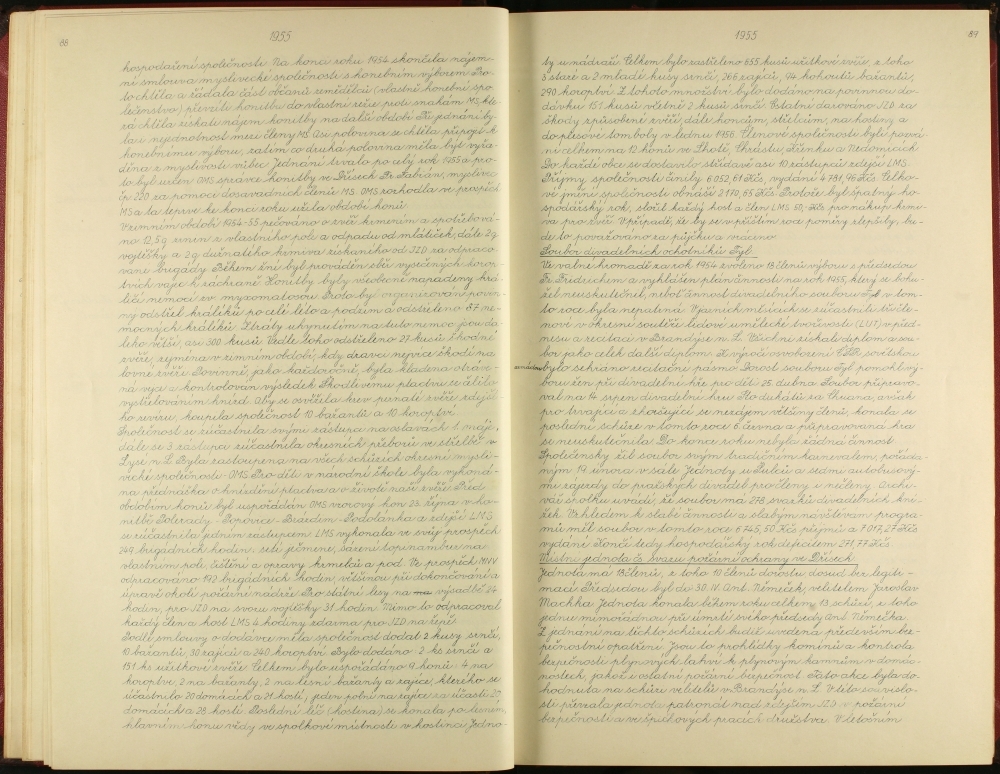 88
1955
hospodaření společnosti. Na konci roku 1954 skončila nájem-
ní smlouva myslivecké společnosti s honebním výborem. Pro-
to chtěla a žádala část občanů zemědělců (vlastní honební spo-
lečenstvo) převzíti honitbu do vlastní režie proti snahám MS, kte-
rá chtěla získati nájem honitby na další období. Při jednání by-
la i nejednotnost mezi členy MS. Asi polovina se chtěla připojit k
honebnímu výboru, zatím co druhá polovina měla být vyřa-
děna z myslivosti vůbec. Jednání trvalo po celý rok 1955 a pro-
to byl určen OMS správce honitby ve Dřísech Fr. Fabián, myslivec
čp. 220 za pomoci dosavadních členů MS. OMS rozhodla ve prospěch
MS a ta teprve ke konci roku užila období honů.
V zimním období 1954-55 pečováno o zvěř krmením a spotřebová-
no 12,5 q zrnin z vlastního pole a odpadu od mlátiček, dále 2 q
vojtěšky a 2 q dužnatého krmiva získaného od JZD za odpraco-
vané brigády. Během žní byl prováděn sběr vysečených korop-
tvích vajec k záchraně. Honitby byly všeobecně napadeny krá-
ličí nemocí zv. myxomatosou. Proto byl organisován povin-
ný odstřel králíků po celé léto a podzim a odstřeleno 87 ne-
mocných králíků. Ztráty uhynutím na tuto nemoc jsou da-
leko větší, asi 300 kusů. Vedle toho odstřeleno 27 kusů škodné
zvěře, zejména v zimním období, kdy dravci nejvíce škodí na
lovné zvěři. Povinně, jako každoročně, byla kladena otráve-
ná vejce a kontrolován výsledek. Škodlivému ptactvu se čelilo
vystřelováním hnízd. Aby se osvěžila krev pernaté zvěře zdejší-
ho revíru, koupila společnost 10 bažantů a 10 koroptví.
Společnost se zúčastnila svými zástupci na oslavách 1. máje,
dále se 3 zástupci zúčastnila okresních přeborů ve střelbě v
Lysé n. L. Byla zastoupena na všech schůzích okresní mysli-
vecké společnosti - OMS. Pro děti v národní škole byla vykoná-
na přednáška o hnízdění ptactva a o životě naší zvěře. Před
obdobím honů byl uspořádán OMS vzorový hon 23. října v ho-
nitbě Polerady - Popovice - Brázdim - Podolánka a zdejší LMS
se zúčastnila jedním zástupcem. LMS vykonala ve svůj prospěch
249 brigádních hodin: setí ječmene, sázení topinambur na
vlastním poli, čištění a opravy krmelců a pod. Ve prospěch MNV
odpracováno 192 brigádních hodin většinou při dokončování a
úpravě okolí požární nádrže. Pro státní lesy na výsadbě 24
hodin, pro JZD na svozu vojtěšky 31 hodin. Mimo to odpracoval
každý člen a host LMS 4 hodiny zdarma pro JZD na řepě.
Podle smlouvy o dodávce měla společnost dodat 2 kusy srnčí,
10 bažantů, 30 zajíců a 240 koroptví. Bylo dodáno: 2 ks srnčí a
151 ks užitkové zvěře. Celkem bylo uspořádáno 9 honů: 4 na
koroptve, 2 na bažanty, 2 na lesní bažanty a zajíce, kterého se
účastnilo 20 domácích a 21 hostí, jeden polní na zajíce za účasti 20
domácích a 28 hostí. Poslední léč (hostina) se konala po lesním
hlavním honu vždy ve spolkové místnosti v hostinci Jedno-

1955
89
ty u nádraží. Celkem bylo zastřeleno 655 kusů užitkové zvěře, z toho
8 staré a 2 mladé kusy srnčí, 266 zajíců, 94 kohoutů bažantů,
290 koroptví. Z tohoto množství bylo dodáno na povinnou do-
dávku 151 kusů včetně 2 kusů srnčí. Ostatní darováno JZD za
škody způsobené zvěří, dále honcům, střelcům, na hostiny a
do plesové tomboly v lednu 1956. Členové společnosti byli pozvá-
ni celkem na 12 honů ve Lhotě, Chrástu, Křenku a Nedomicích.
Do každé obce se dostavilo střídavě asi 10 zástupců zdejší LMS.
Příjmy společnosti činily 6 052,61 Kčs, vydání 4 781,96 Kčs. Celko-
vé jmění společnosti obnáší 2 170,65 Kčs. Protože byl špatný ho-
spodářský rok, složil každý host a člen LMS 50,- Kčs pro nákup krmi-
va pro zvěř. V případě, že by se v příštím roce poměry zlepšily, bu-
de to považováno za půjčku a vráceno.
Soubor divadelních ochotníků Tyl.
Ve valné hromadě za rok 1954 zvoleno 13 členů výboru s předsedou
Fr. Fridrichem a vyhlášen plán činnosti na rok 1955, který se bohu-
žel neuskutečnil, neboť činnost divadelního souboru Tyl v tom-
to roce byla nepatrná. V jarních měsících se zúčastnili tři čle-
nové v okresní soutěži lidové umělecké tvořivosti (LUT) v před-
nesu a recitaci v Brandýse n. L. Všichni získali diplom a sou-
bor jako celek další diplom. K výročí osvobození ČSR sovětskou
armádou bylo sehráno recitační pásmo. Dorost souboru Tyl pomohl vý-
boru žen při divadelní hře pro děti 25. dubna. Soubor připravo-
val na 14. srpen divadelní hru Sto dukátů za Chuana, avšak
pro trvající a zhoršující se nezájem většiny členů, konala se
poslední schůze v tomto roce 6. června a připravovaná hra
se neuskutečnila. Do konce roku nebyla žádná činnost.
Společensky žil soubor svým tradičním karnevalem, pořáda-
ným 19. února v sále Jednoty u Pulců a sedmi autobusový-
mi zájezdy do pražských divadel pro členy i nečleny. Archi-
vář spolku uvádí, že soubor má 278 svazků divadelních kni-
žek. Vzhledem k slabé činnosti a slabým návštěvám progra-
mů měl soubor v tomto roce 6 745,50 Kčs příjmů a 7 017,27 Kčs
vydání. Končí tedy hospodářský rok deficitem 271,77 Kčs.
Místní jednota čs. svazu požární ochrany ve Dřísech
Jednota má 18 členů, z toho 10 členů dorostu dosud bez legiti-
mací. Předsedou byl do 30. IV. Ant. Němeček, velitelem Jaroslav
Machka. Jednota konala během roku celkem 13 schůzí, z toho
jednu mimořádnou při úmrtí svého předsedy Ant. Němečka.
Z jednání na těchto schůzích budiž uvedena především bez-
pečnostní opatření. Jsou to prohlídky komínů a kontrola
bezpečnosti plynových lahví k plynovým kamnům v domác-
nostech, jakož i ostatní požární bezpečnost. Tato akce byla do-
hodnuta na schůzi velitelů v Brandýse n. L. V této souvislo-
sti převzala jednota patronát nad zdejším JZD v požární
bezpečnosti a ve špičkových pracích družstva. V letošním